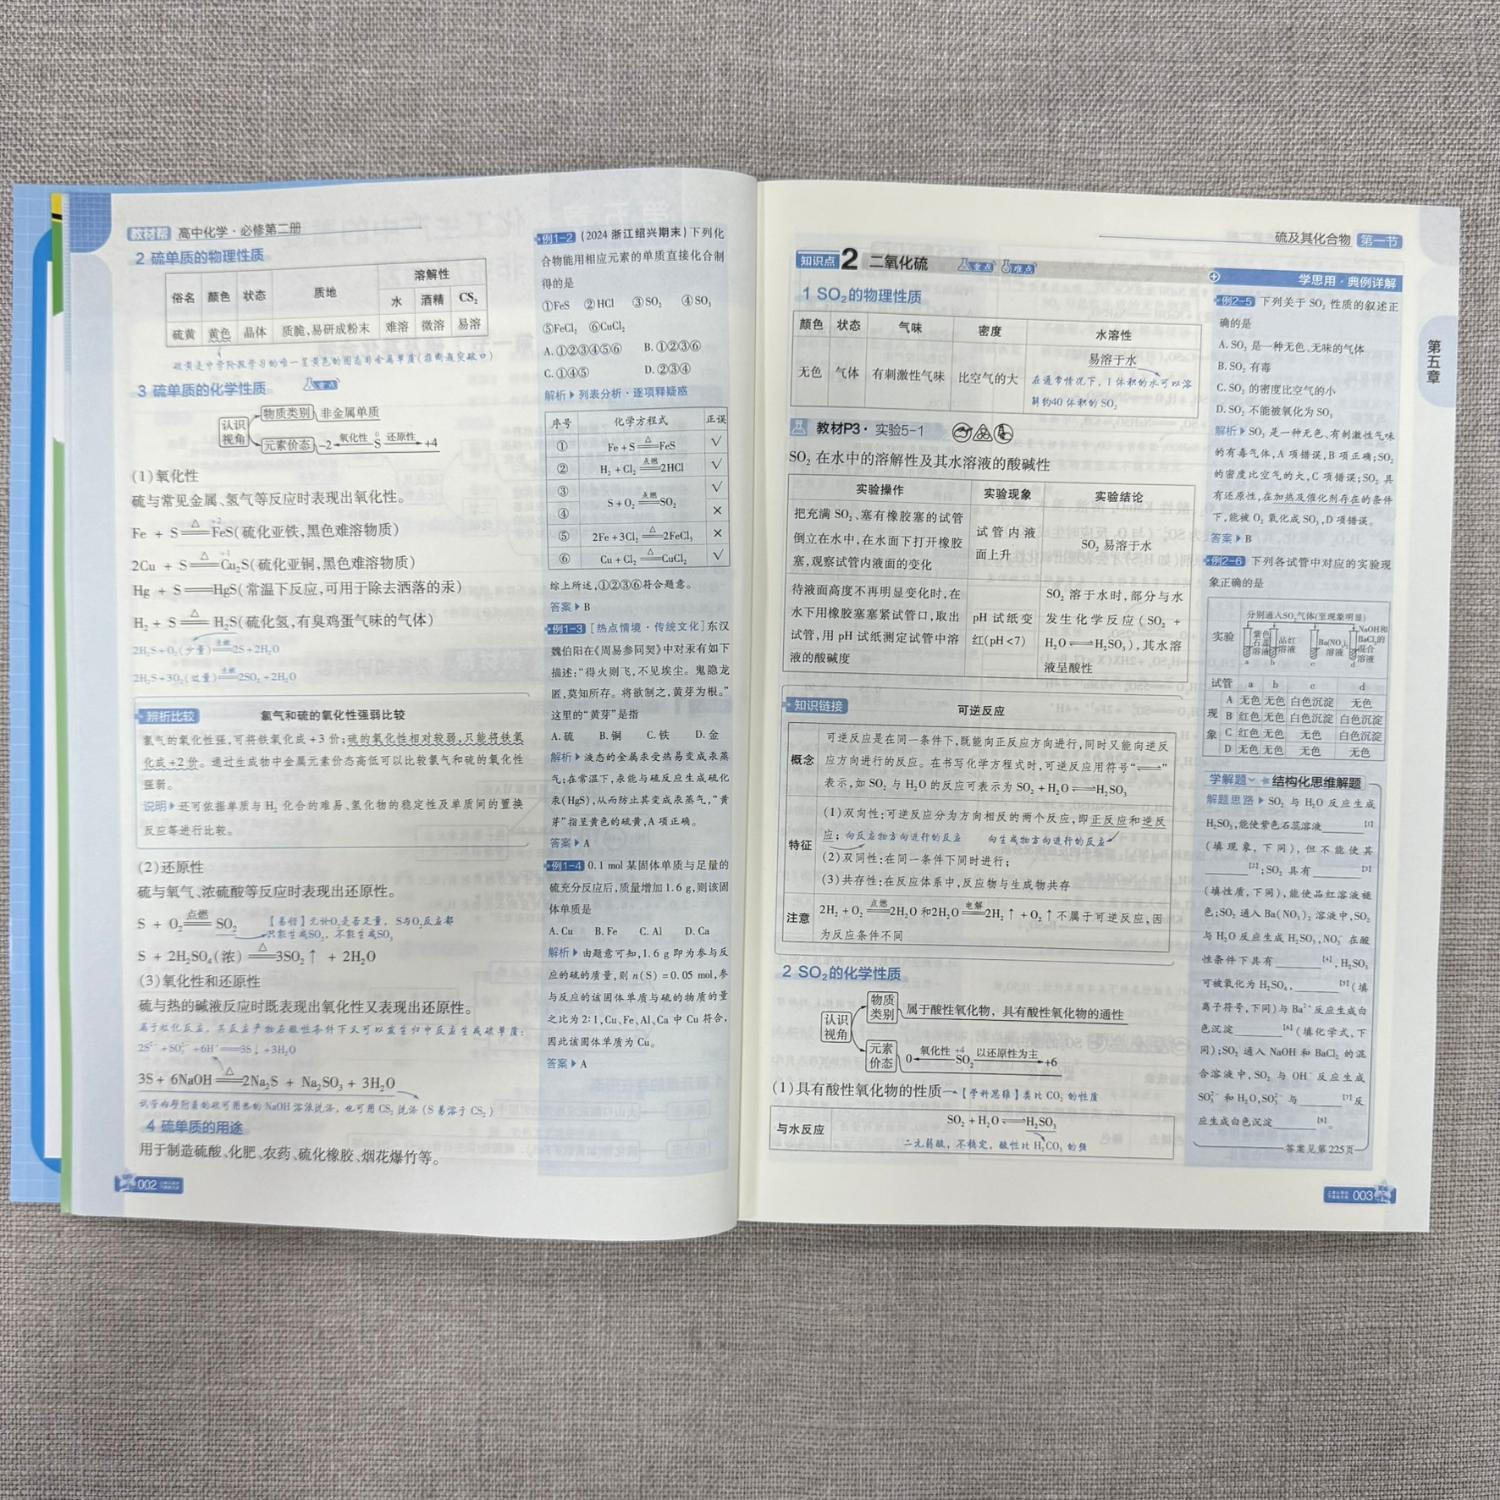 教材帮 高中化学·必修第二册
2 硫单质的物理性质
俗名 颜色 状态 质地 溶解性
水 酒精 CS₂
硫黄 黄色 晶体 质脆,易研成粉末 难溶 微溶 易溶
硫黄是中学阶段学习的唯一呈黄色的固态非金属单质(推断题突破口)
3 硫单质的化学性质 重点
认识视角
物质类别 非金属单质
元素价态 -2 氧化性 S 还原性 +4
(1)氧化性
硫与常见金属、氢气等反应时表现出氧化性。
Fe + S =△= FeS(硫化亚铁,黑色难溶物质)
2Cu + S =△= Cu₂S(硫化亚铜,黑色难溶物质)
Hg + S == HgS(常温下反应,可用于除去洒落的汞)
H₂ + S =△= H₂S(硫化氢,有臭鸡蛋气味的气体)
2H₂S+O₂(少量) =点燃= 2S+2H₂O
2H₂S+3O₂(过量) =点燃= 2SO₂+2H₂O
辨析比较 氯气和硫的氧化性强弱比较
氯气的氧化性强,可将铁氧化成+3价;硫的氧化性相对较弱,只能将铁氧
化成+2价。通过生成物中金属元素价态高低可以比较氯气和硫的氧化性
强弱。
说明▶还可依据单质与H₂化合的难易、氢化物的稳定性及单质间的置换
反应等进行比较。
(2)还原性
硫与氧气、浓硫酸等反应时表现出还原性。
S + O₂ =点燃= SO₂ 【易错】无论O₂是否足量,S与O₂反应都
只能生成SO₂,不能生成SO₃
S + 2H₂SO₄(浓) =△= 3SO₂↑ + 2H₂O
(3)氧化性和还原性
硫与热的碱液反应时既表现出氧化性又表现出还原性。
属于歧化反应,其反应产物在酸性条件下又可以发生归中反应生成硫单质:
2S²⁻+SO₃²⁻+6H⁺==3S↓+3H₂O
3S + 6NaOH =△= 2Na₂S + Na₂SO₃ + 3H₂O
试管内壁附着的硫可用热的NaOH溶液洗涤,也可用CS₂洗涤(S易溶于CS₂)
4 硫单质的用途
用于制造硫酸、化肥、农药、硫化橡胶、烟花爆竹等。
002
例1-2 (2024浙江绍兴期末)下列化
合物能用相应元素的单质直接化合制
得的是
①FeS ②HCl ③SO₂ ④SO₃
⑤FeCl₂ ⑥CuCl₂
A.①②③④⑤⑥ B.①②③⑥
C.①④⑤ D.②③④
解析▶列表分析·逐项释疑惑
序号 化学方程式 正误
① Fe+S =△= FeS √
② H₂+Cl₂ =点燃= 2HCl √
③ S+O₂ =点燃= SO₂ √
④ ×
⑤ 2Fe+3Cl₂ =△= 2FeCl₃ ×
⑥ Cu+Cl₂ =△= CuCl₂ √
综上所述,①②③⑥符合题意。
答案▶B
例1-3 [热点情境·传统文化]东汉
魏伯阳在《周易参同契》中对汞有如下
描述:“得火则飞,不见埃尘。鬼隐龙
匿,莫知所存。将欲制之,黄芽为根。”
这里的“黄芽”是指
A.硫 B.铜 C.铁 D.金
解析▶液态的金属汞受热易变成汞蒸
气;在常温下,汞能与硫反应生成硫化
汞(HgS),从而防止其变成汞蒸气,“黄
芽”指呈黄色的硫黄,A项正确。
答案▶A
例1-4 0.1 mol某固体单质与足量的
硫充分反应后,质量增加1.6 g,则该固
体单质是
A.Cu B.Fe C.Al D.Ca
解析▶由题意可知,1.6 g即为参与反
应的硫的质量,则n(S)=0.05 mol,参
与反应的该固体单质与硫的物质的量
之比为2:1,Cu、Fe、Al、Ca中Cu符合,
因此该固体单质为Cu。
答案▶A
硫及其化合物 第一节
第五章
知识点2 二氧化硫 重点 难点
1 SO₂的物理性质
颜色 状态 气味 密度 水溶性
无色 气体 有刺激性气味 比空气的大 易溶于水
在通常情况下,1体积的水可以溶
解约40体积的SO₂
教材P3·实验5-1
SO₂在水中的溶解性及其水溶液的酸碱性
实验操作 实验现象 实验结论
把充满SO₂、塞有橡胶塞的试管
倒立在水中,在水面下打开橡胶
塞,观察试管内液面的变化
试管内液
面上升
SO₂易溶于水
待液面高度不再明显变化时,在
水下用橡胶塞塞紧试管口,取出
试管,用pH试纸测定试管中溶
液的酸碱度
pH试纸变
红(pH<7)
SO₂溶于水时,部分与水
发生化学反应(SO₂+
H₂O⇌H₂SO₃),其水溶
液呈酸性
知识链接 可逆反应
概念
可逆反应是在同一条件下,既能向正反应方向进行,同时又能向逆反
应方向进行的反应。在书写化学方程式时,可逆反应用符号“⇌”
表示,如SO₂与H₂O的反应可表示为SO₂+H₂O⇌H₂SO₃
特征
(1)双向性:可逆反应分为方向相反的两个反应,即正反应和逆反
应; 向反应物方向进行的反应 向生成物方向进行的反应
(2)双同性:在同一条件下同时进行;
(3)共存性:在反应体系中,反应物与生成物共存
注意
2H₂+O₂ =点燃= 2H₂O和2H₂O =电解= 2H₂↑+O₂↑不属于可逆反应,因
为反应条件不同
2 SO₂的化学性质
认识视角
物质类别 属于酸性氧化物,具有酸性氧化物的通性
元素价态 0 氧化性 +4 SO₂ 以还原性为主 +6
(1)具有酸性氧化物的性质→【学科思维】类比CO₂的性质
与水反应
SO₂+H₂O⇌H₂SO₃
二元弱酸,不稳定,酸性比H₂CO₃的强
学思用·典例详解
例2-5 下列关于SO₂性质的叙述正
确的是
A.SO₂是一种无色、无味的气体
B.SO₂有毒
C.SO₂的密度比空气的小
D.SO₂不能被氧化为SO₃
解析▶SO₂是一种无色、有刺激性气味
的有毒气体,A项错误,B项正确;SO₂
的密度比空气的大,C项错误;SO₂具
有还原性,在加热及催化剂存在的条件
下,能被O₂氧化成SO₃,D项错误。
答案▶B
例2-6 下列各试管中对应的实验现
象正确的是
实验 分别通入SO₂气体(至现象明显)
紫色石蕊溶液 品红溶液 Ba(NO₃)₂溶液 NaOH和BaCl₂的混合溶液
a b c d
试管 a b c d
现象
A 无色 无色 白色沉淀 无色
B 红色 无色 白色沉淀 白色沉淀
C 红色 无色 无色 白色沉淀
D 无色 无色 无色 无色
学解题 结构化思维解题
解题思路▶SO₂与H₂O反应生成
H₂SO₃,能使紫色石蕊溶液______[1]
(填现象,下同),但不能使其
______[2];SO₂具有______[3]
(填性质,下同),能使品红溶液褪
色;SO₂通入Ba(NO₃)₂溶液中,SO₂
与H₂O反应生成H₂SO₃,NO₃⁻在酸
性条件下具有______[4],H₂SO₃
可被氧化为H₂SO₄,______[5](填
离子符号,下同)与Ba²⁺反应生成白
色沉淀______[6](填化学式,下
同);SO₂通入NaOH和BaCl₂的混
合溶液中,SO₂与OH⁻反应生成
SO₃²⁻和H₂O,SO₃²⁻与______[7]反
应生成白色沉淀______[8]。
答案见第225页
003